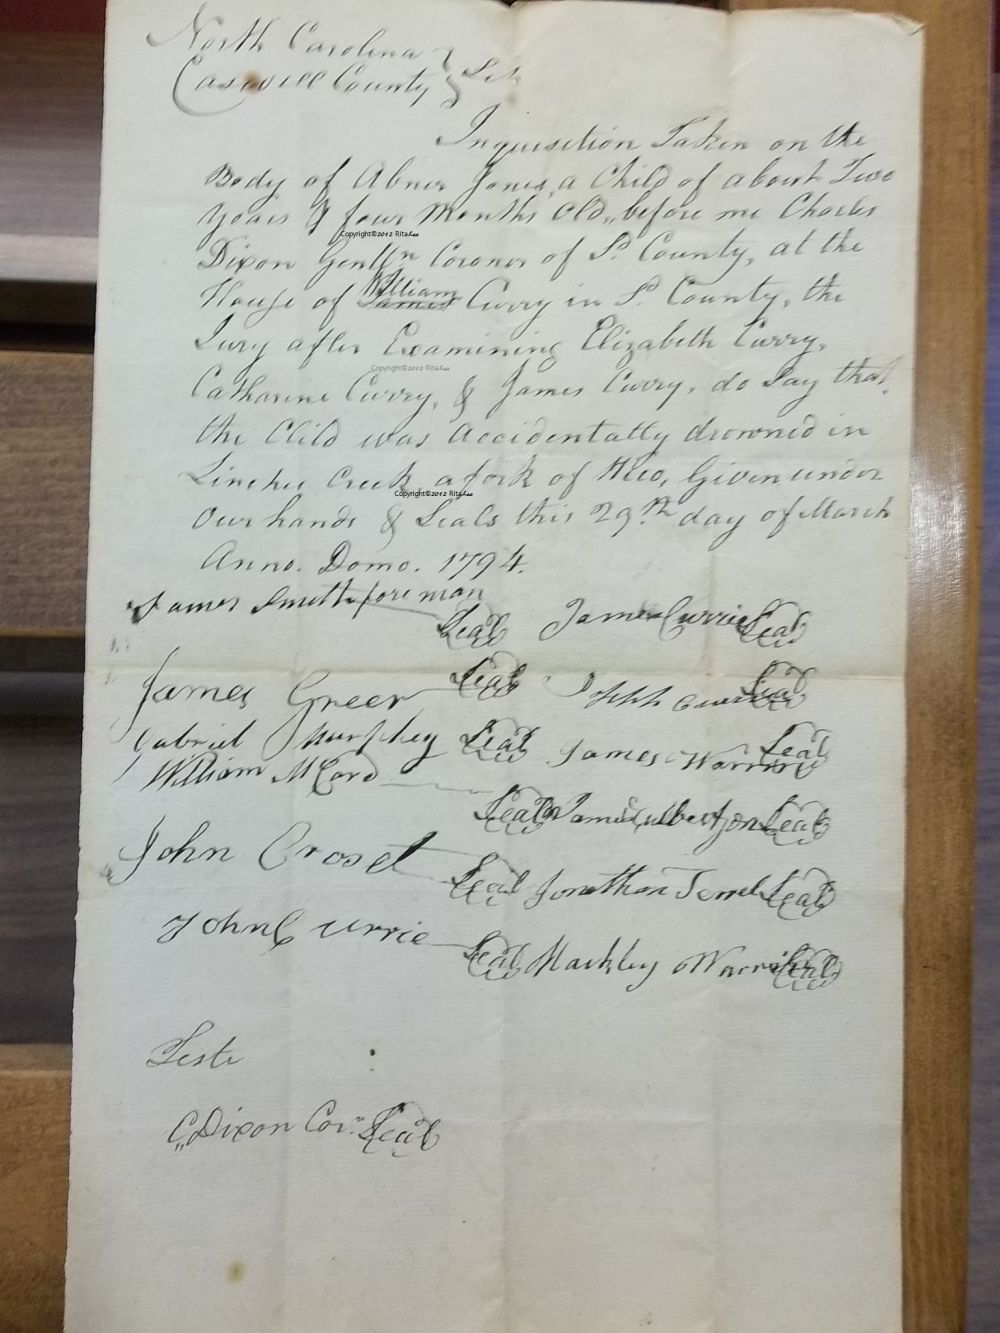 North Carolina
Caswell County } Sct
Inquisition Taken on the
Body of Abner Jones, a Child of about Two
years & four Months Old, before me Charles
Copyright©2012 RitaLee
Dixon Gentln Coroner of Sd. County, at the
House of James William Curry in Sd. County, the
Jury after Examining Elizabeth Curry,
Copyright©2012 RitaLee
Catharine Curry, & James Curry, do Say that
the Child was Accidentally drowned in
Creek, a fork of Hico, Given under
Copyright©2012 RitaLee
Our hands & Seals this 29.th day of March
Anno. Domo. 1794.
James Smith foreman Seal James Currie Seal
James Greer Seal Seal
Gabriel Murphey Seal James Seal
William McCord Seal James Culbertson Seal
John Seal Jonathan Terrel Seal
John Currie Seal Mackley Seal
Teste
C Dixon Cor. Seal